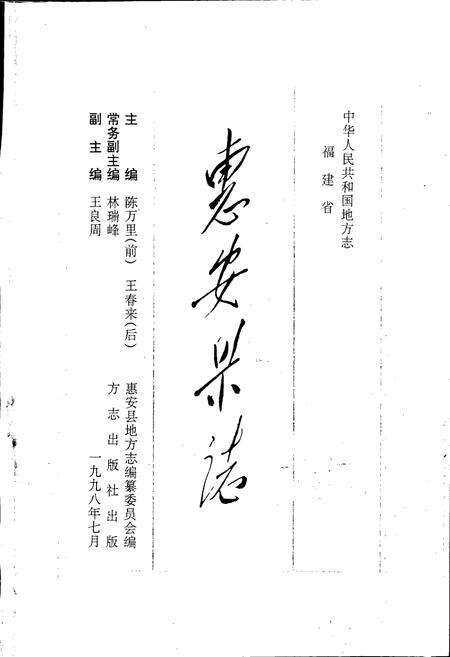 中华人民共和国地方志
福建省
惠安县志
主编 陈万里(前) 王春来(后)
常务副主编 林瑞峰
副主编 王良周
惠安县地方志编纂委员会编
方志出版社出版
一九九八年七月